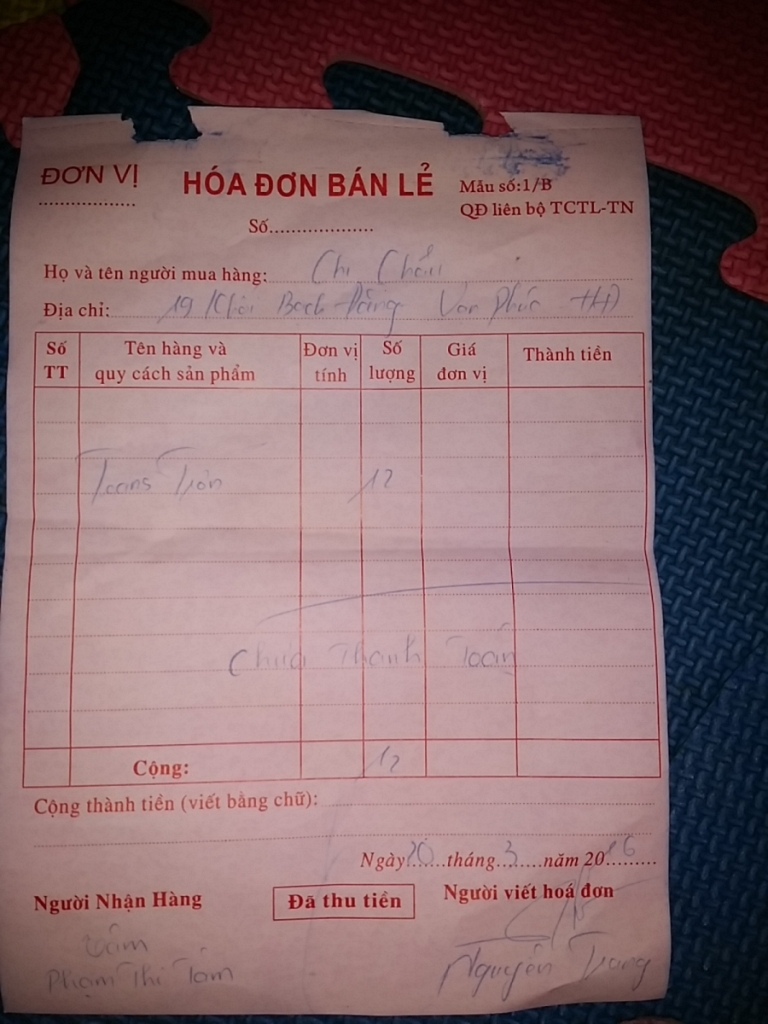 ĐƠN VỊ
HÓA ĐƠN BÁN LẺ
Mẫu số:1/B
QĐ liên bộ TCTL-TN
Số
Họ và tên người mua hàng: Chị
Địa chỉ: 19 Bạch Đằng Vạn Phúc HĐ
Số TT
Tên hàng và quy cách sản phẩm
Đơn vị tính
Số lượng
Giá đơn vị
Thành tiền
12
Chưa Thanh Toán
Cộng: 12
Cộng thành tiền (viết bằng chữ):
Ngày 20 tháng 3 năm 2016
Người Nhận Hàng
Đã thu tiền
Người viết hoá đơn
Tâm
Phạm Thị Tâm
Nguyễn Trang